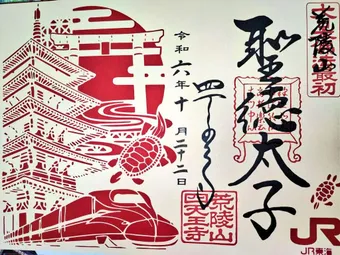 荒陵山
最初
聖徳太子
令和六年十一月二十二日
四天王寺
荒陵山
四天王寺
JR
JR東海